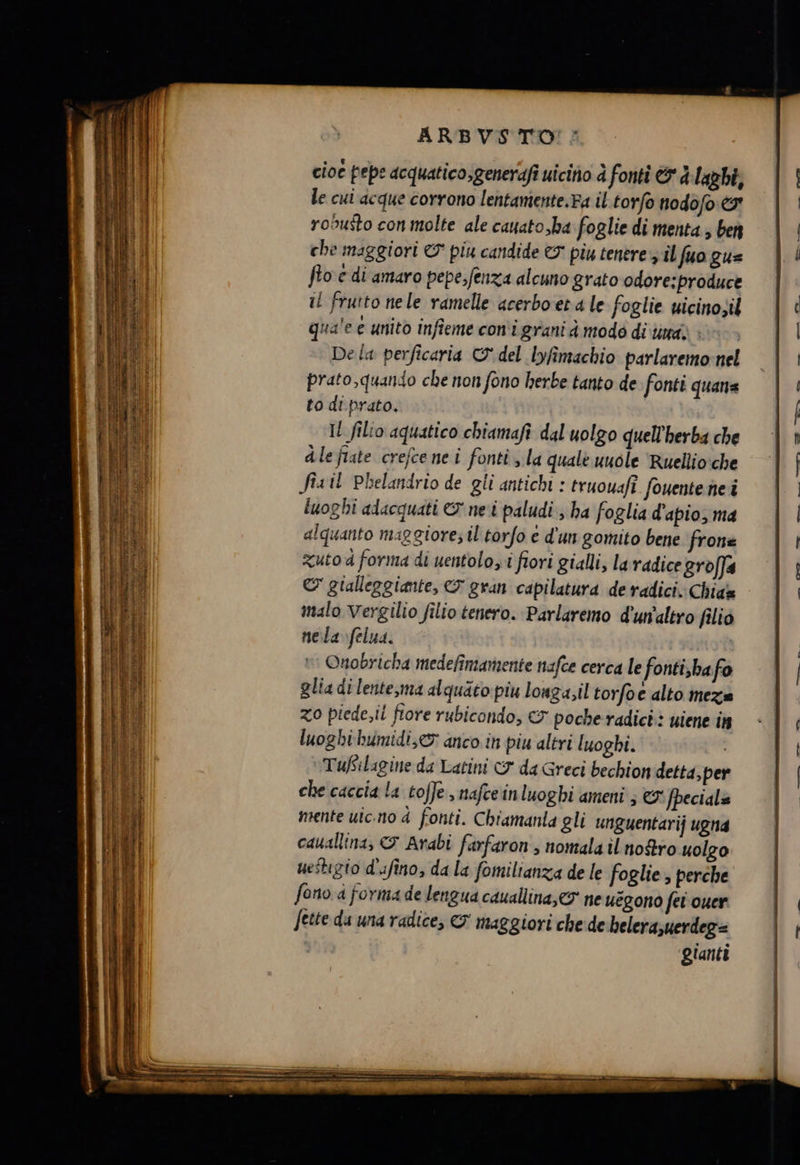 ARBVSTO
cioè pepe acquatico,generasi uicino à fonti & à laghi,
le cui acque corrono lentamente.Fa il torso nodoso &
robusto con molte ale cauato,ha foglie di menta , ben
che maggiori & piu candide & piu tenere , il suo gu=
sto è di amaro pepe,senza alcuno grato odore:produce
il frutto ne le ramelle acerbo et a le foglie uicino,il
quale è unito insieme con i grani à modo di uua.
De la persicaria & del lysimachio parlaremo nel
prato,quando che non sono herbe tanto de fonti quan=
to di prato.
Il filio aquatico chiamasi dal uolgo quell'herba che
à le fiate cresce ne i fonti , la quale uuole Ruellio che
sia il Phelandrio de gli antichi : truouasi souente ne i
luoghi adacquati & ne i paludi , ha foglia d'apio, ma
alquanto maggiore, il torso è d'un gomito bene fron=
zuto à forma di uentolo, i fiori gialli, la radice grossa
& gialleggiante, & gran capilatura de radici. Chia=
malo Vergilio filio tenero. Parlaremo d'un'altro filio
ne la selua.
Onobricha medesimamente nasce cerca le fonti,ha fo
glia di lente,ma alquãto piu longa,il torso è alto mez=
zo piede,il fiore rubicondo, & poche radici : uiene in
luoghi humidi,& anco in piu altri luoghi.
Tussilagine da Latini & da Greci bechion detta,per
che caccia la tosse , nasce in luoghi ameni , & special=
mente uicino à fonti. Chiamanla gli unguentarij ugna
cauallina, & Arabi farfaron , nomala il nostro uolgo
uestigio d'asino, da la somilianza de le foglie , perche
sono à forma de lengua cauallina,& ne uẽgono sei ouer
sette da una radice, & maggiori che de helera,uerdeg=
gianti